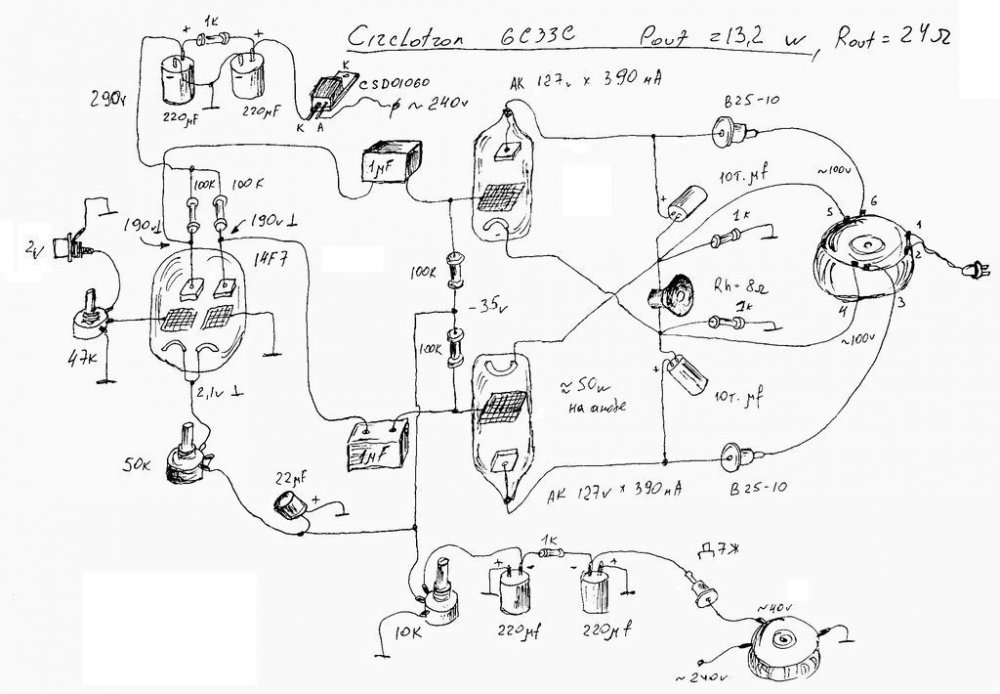 Circlotron 6C33C Pout = 13,2 w, Rout = 24Ω
1k
+
+
K
CSD01060
AK 127v x 390 мА
B25-10
290v
220μF
220μF
K A
~ 240v
1μF
100K
100K
10т.μf
~100v
6
5
1
190v⊥
190v⊥
+
1k
2
2v
14F7
100K
Rh = 8Ω
-35v
1k
3
4
47K
100K
≈ 50w
на аноде
+
~100v
2,1v⊥
10т.μf
50K
1μF
22μF
+
AK 127v x 390 мА
B25-10
1k
Д7Ж
+
-
-
+
~40v
10K
220μf
220μf
~240v